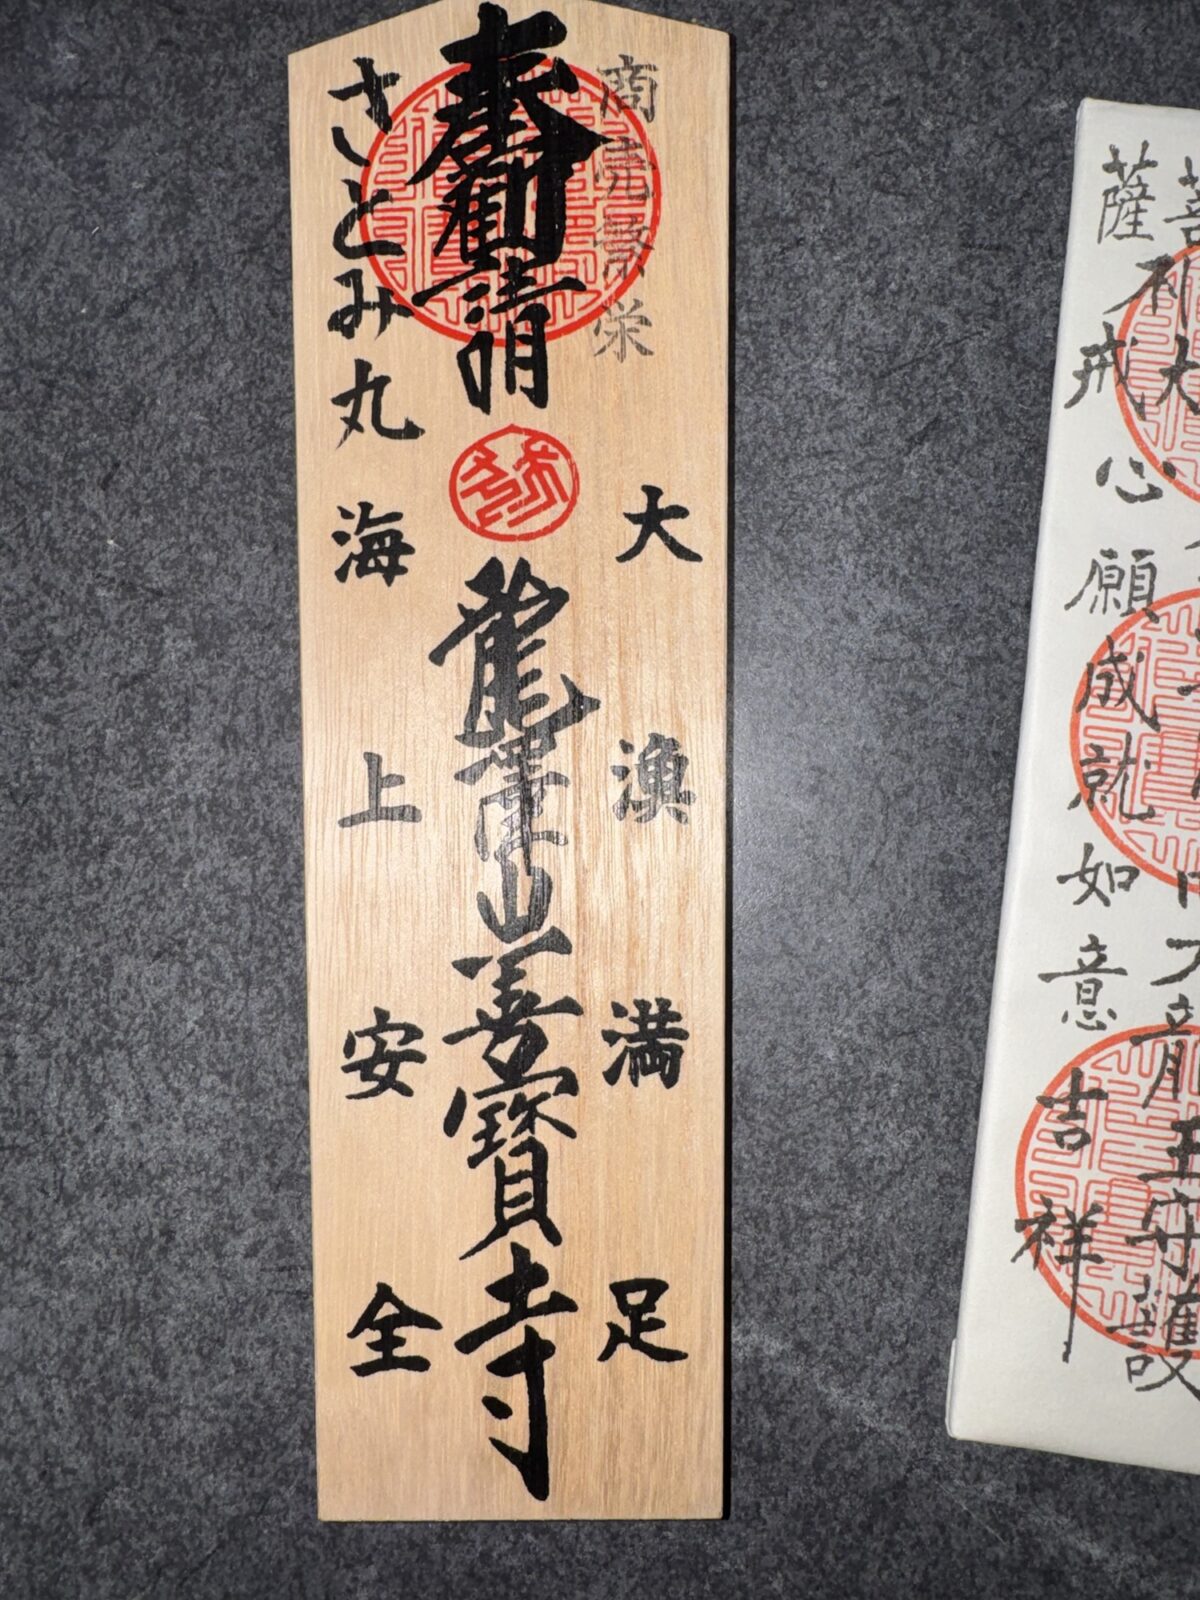 大龍王守護
薩戒心願成就如意吉祥
商売繁栄
大漁満足
奉勧請
龍澤山善寳寺
さとみ丸
海上安全